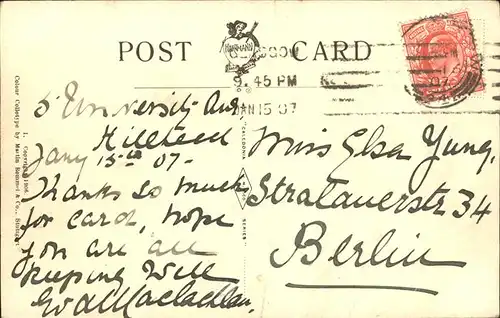 POST CARD
GLASGOW
9.45 PM
JAN 15 07
5 University Ave
Hillhead
Jany 15th 07.
Thanks so much
for card, hope
you are all
keeping well
Maclachlan.
Miss Elsa Jung,
Stralauerstr 34
Berlin
CALEDONIA
SERIES
1. Copyright 1906.
Colour Collotype by Martin Rommel & Co., Stuttgart.